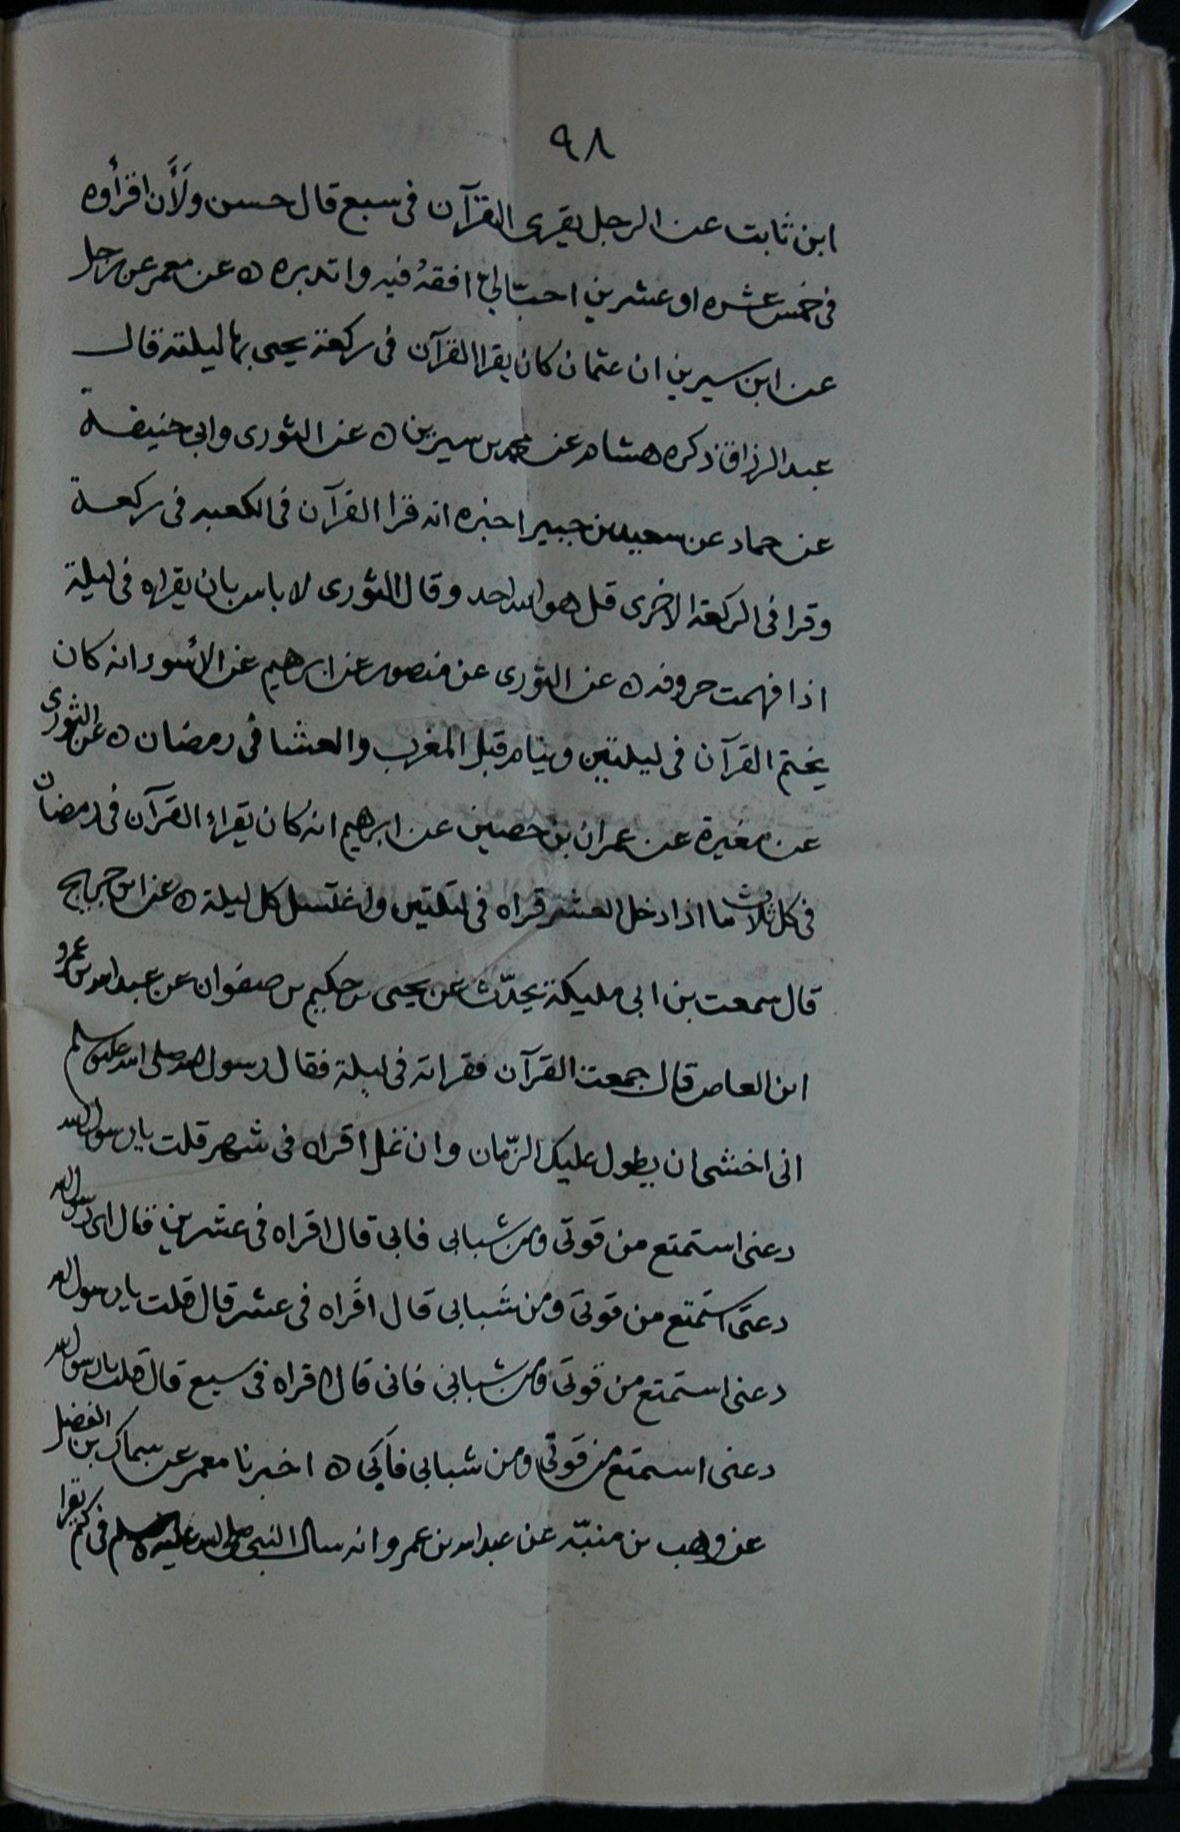 ٩٨
ابن ثابت عن الرجل يقرى القرآن فى سبع قال حسن ولَأَن اقرأوه
فى خمس عشره او عشرين احبّ الىّ افقهُ فيه واتدبره ٥ عن معمر عن رجل
عن ابن سيرين ان عثمان كان يقرا القرآن فى ركعة يحيى بها ليلته قال
عبد الرزاق ذكره هشام عن محمد بن سيرين ٥ عن الثورى وابى حنيفة
عن حماد عن سعيد بن جبير اخبره انه قرا القرآن فى الكعبه فى ركعة
وقرا فى الركعة الاخرى قل هو الله احد وقال الثورى لا باس بان يقراه فى ليلة
اذا فهمت حروفه ٥ عن الثورى عن منصور عن ابرهيم عن الأسود انه كان
يختم القرآن فى ليلتين وينام قبل المغرب والعشا فى رمضان ٥ عن الثورى
عن مغيرة عن عمران بن حصين عن ابرهيم انه كان يقراء القرآن فى رمضان
فى كل ثلاث ما اذا دخل العشر قراه فى ليلتين واغتسل كل ليلة ٥ عن ابن جريج
قال سمعت بن ابى مليكة يحدّث عن يحيى بن حكيم بن صفوان عن عبد الله بن عمرو
ابن العاص قال جمعت القرآن فقراته فى ليلة فقال رسول الله صلى الله عليه وسلم
انى اخشى ان يطول عليك الزّمان وان تمل اقراه فى شهر قلت يا رسول الله
دعنى استمتع من قوتى ومن شبابى فابى قال اقراه فى عشرين قال اى رسول الله
دعنى استمتع من قوتى ومن شبابى قال اقراه فى عشر قال قلت يا رسول الله
دعنى استمتع من قوتى ومن شبابى فانى قال اقراه فى سبع قال قلت يا رسول الله
دعنى استمتع من قوتى ومن شبابى فابى ٥ اخبرنا معمر عن سماك بن الفضل
عن وهب بن منبّه عن عبد الله بن عمرو انه سال النبى صلى الله عليه وسلم فى كم يقرا